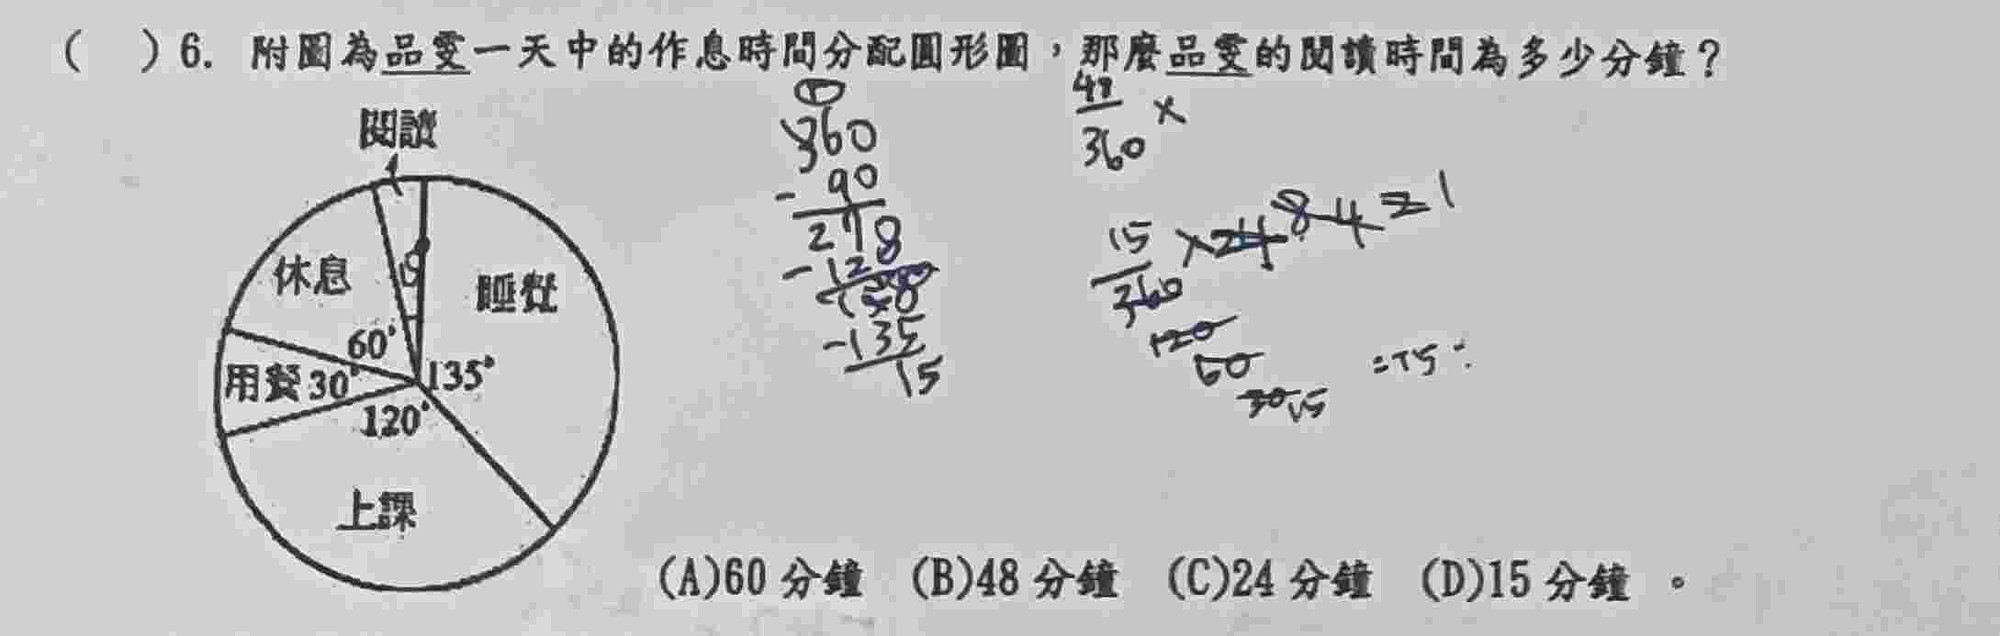 ( )6. 附圖為品雯一天中的作息時間分配圓形圖，那麼品雯的閱讀時間為多少分鐘？
閱讀
休息
睡覺
60°
用餐 30°
135°
120°
上課
360
- 90
27
-135
15
360 ×
15
360
×24
8 4 = 1
120
60
30 15
=15
(A)60 分鐘 (B)48 分鐘 (C)24 分鐘 (D)15 分鐘 。